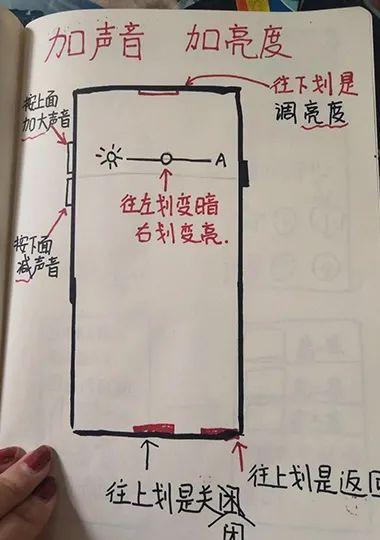 加声音 加亮度
往下划是
调亮度
按上面
加大声音
A
往左划变暗
右划变亮.
按下面
减声音
往上划是关闭
闭
往上划是返回